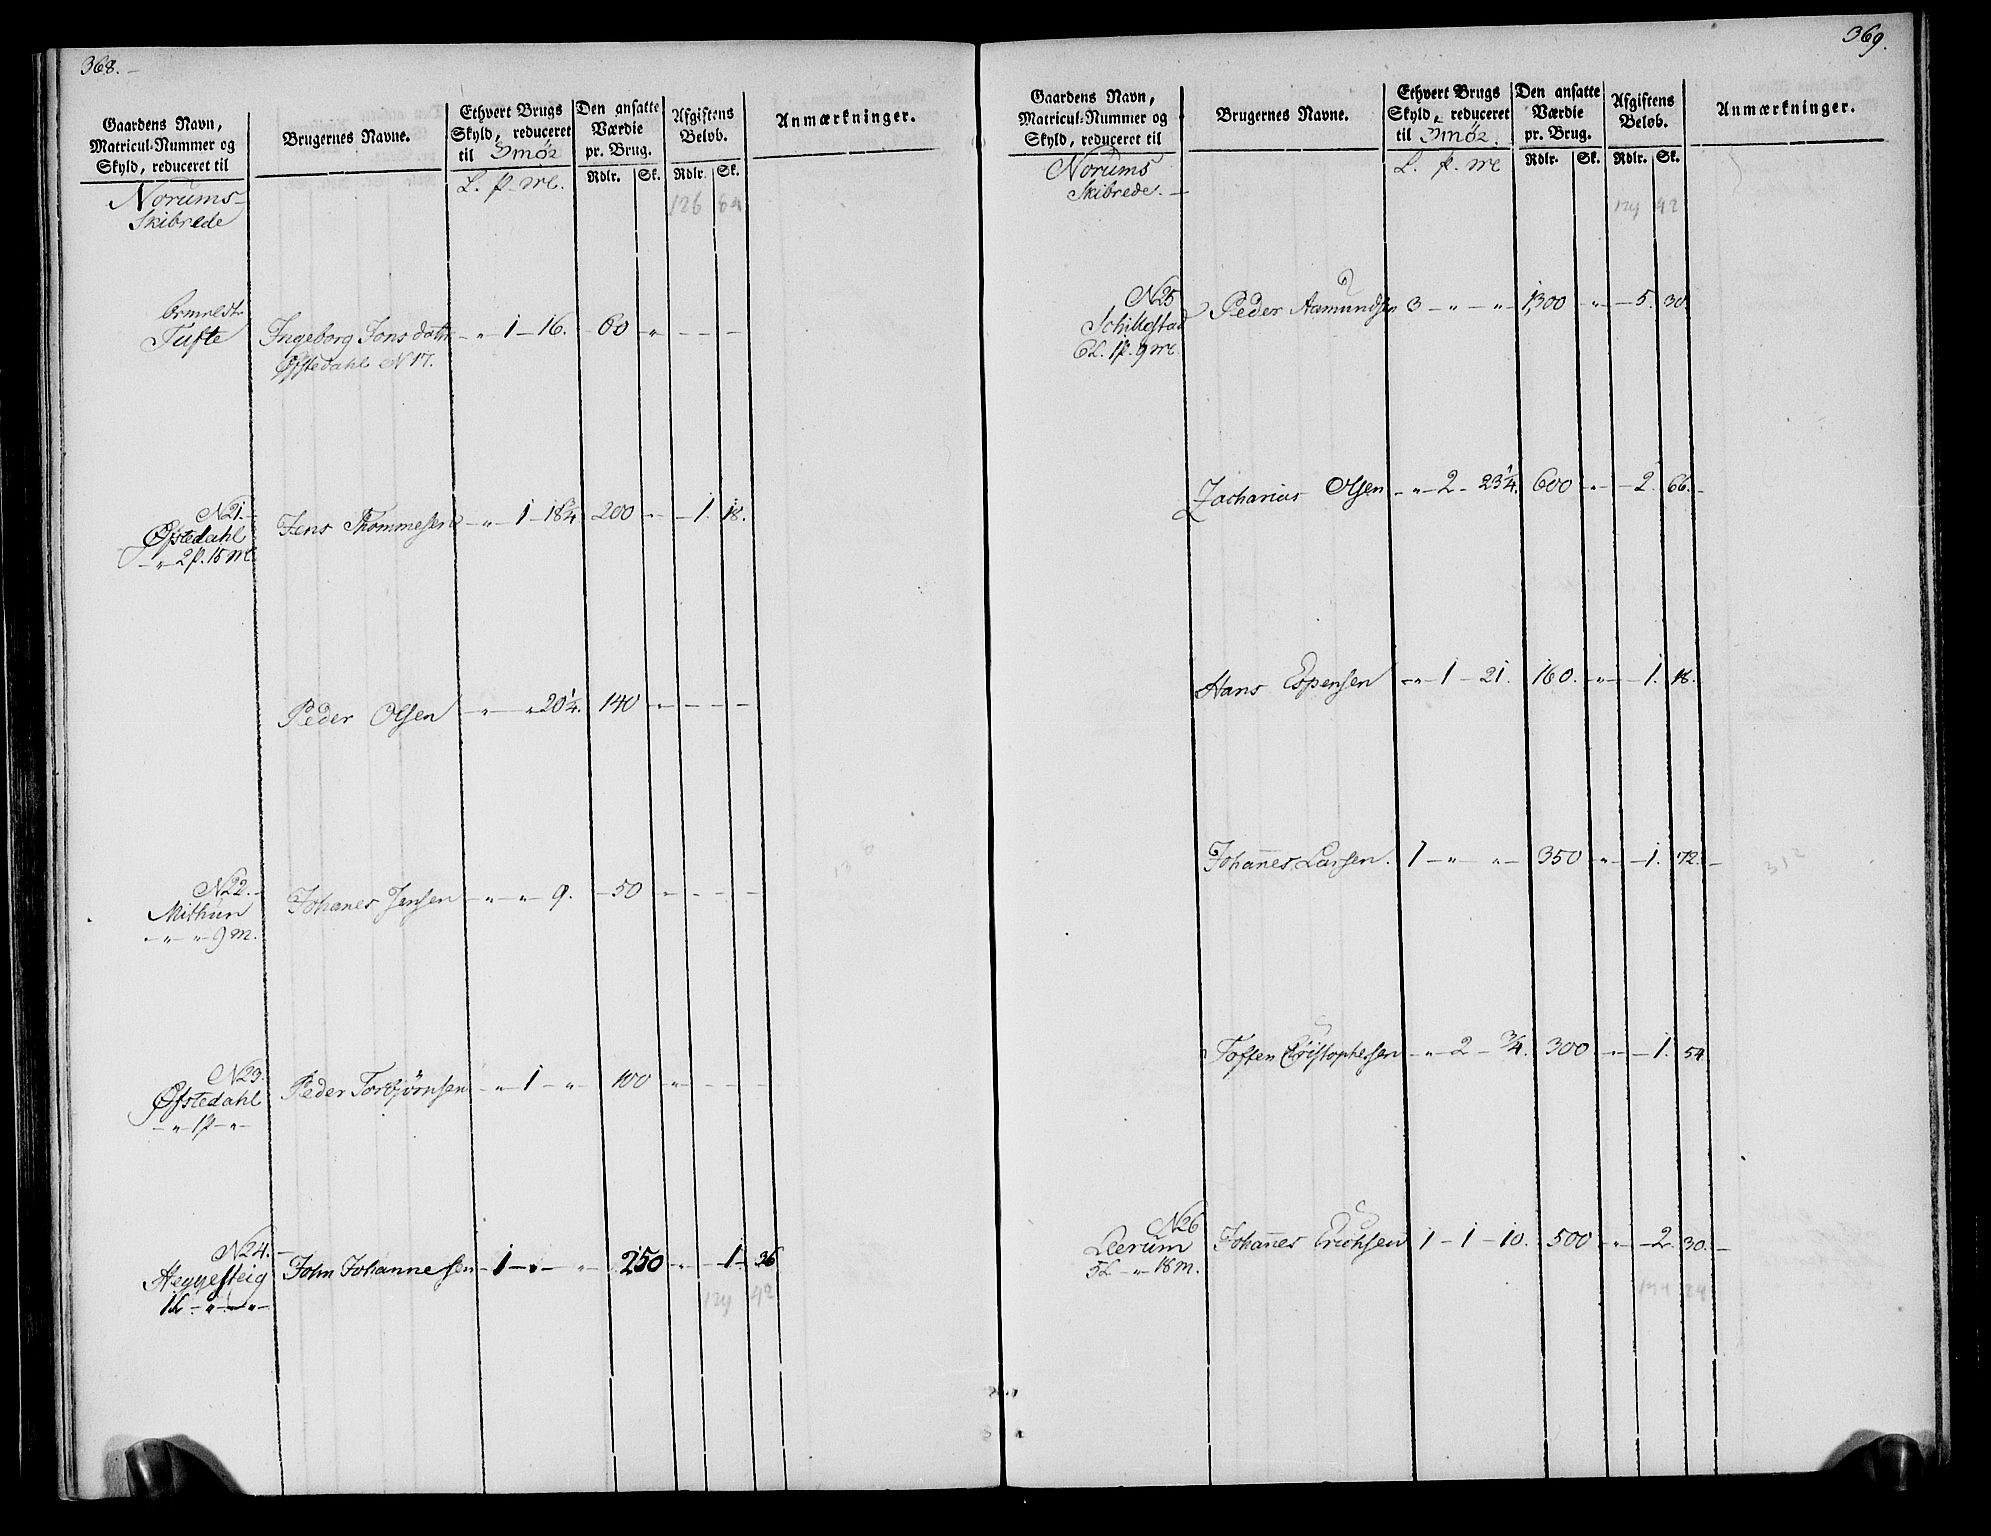 368.
Gaardens Navn, Matricul-Nummer og Skyld, reduceret til
Brugernes Navne.
Ethvert Brugs Skyld, reduceret til Smör
Den ansatte Værdie pr. Brug.
Afgiftens Beløb.
Anmærkninger.
L. p. mk. Rdlr. Sk. Rdlr. Sk.
Norums-
Skibrede
126
Tufte Ingeborg Jons datter – " 1 – 16. – 60 – " – – –
Øfstedahl N 17.
N21. Jens Thommesen – " – 1 – 18¾ 200 – " – 1. 18.
Øfstedahl
– " 2 p. 15 mk
Peder Olsen – " – " 20¼. 140 – " – – –
N22. Johanes Jensen – " – " – 9. – 50 – " – – –
Mithun
– " – " 9 m.
N23. Peder Torbjörnsen – " 1 – " – 100 – " – – –
Øfstedahl
– " – 1p – " –
N24. John Johannesen – 1 – " – " – 250 – " – 1. 36
Heggesteig
1L – " – " –
129 42
369.
Gaardens Navn, Matricul-Nummer og Skyld, reduceret til
Brugernes Navne.
Ethvert Brugs Skyld, reduceret til Smör.
Den ansatte Værdie pr. Brug.
Afgiftens Beløb.
Anmærkninger.
L. p. mk Rdlr. Sk. Rdlr. Sk.
Norums
Skibrede. –
129 42
N25 Peder Aamundsen 3 – " – " – 1,300 – " – 5. 30.
6L. 1p. 9 mk
Zacharias Olsen – " – 2 – 23¼. 600 – " – 2. 66. –
Hans Espensen – " – 1 – 21. 160. – " – 1. 18.
Johanes Larsen. 1 – " – " – 350 – " – 1. 72. –
Toffen Christophersen – " – 2 – ¾. 300 – " – 1. 54.
N26 Johannes Erichsen 1 – 1 – 10. 500 – " – 2. 30. –
Lerum
5L – " – 18 m.